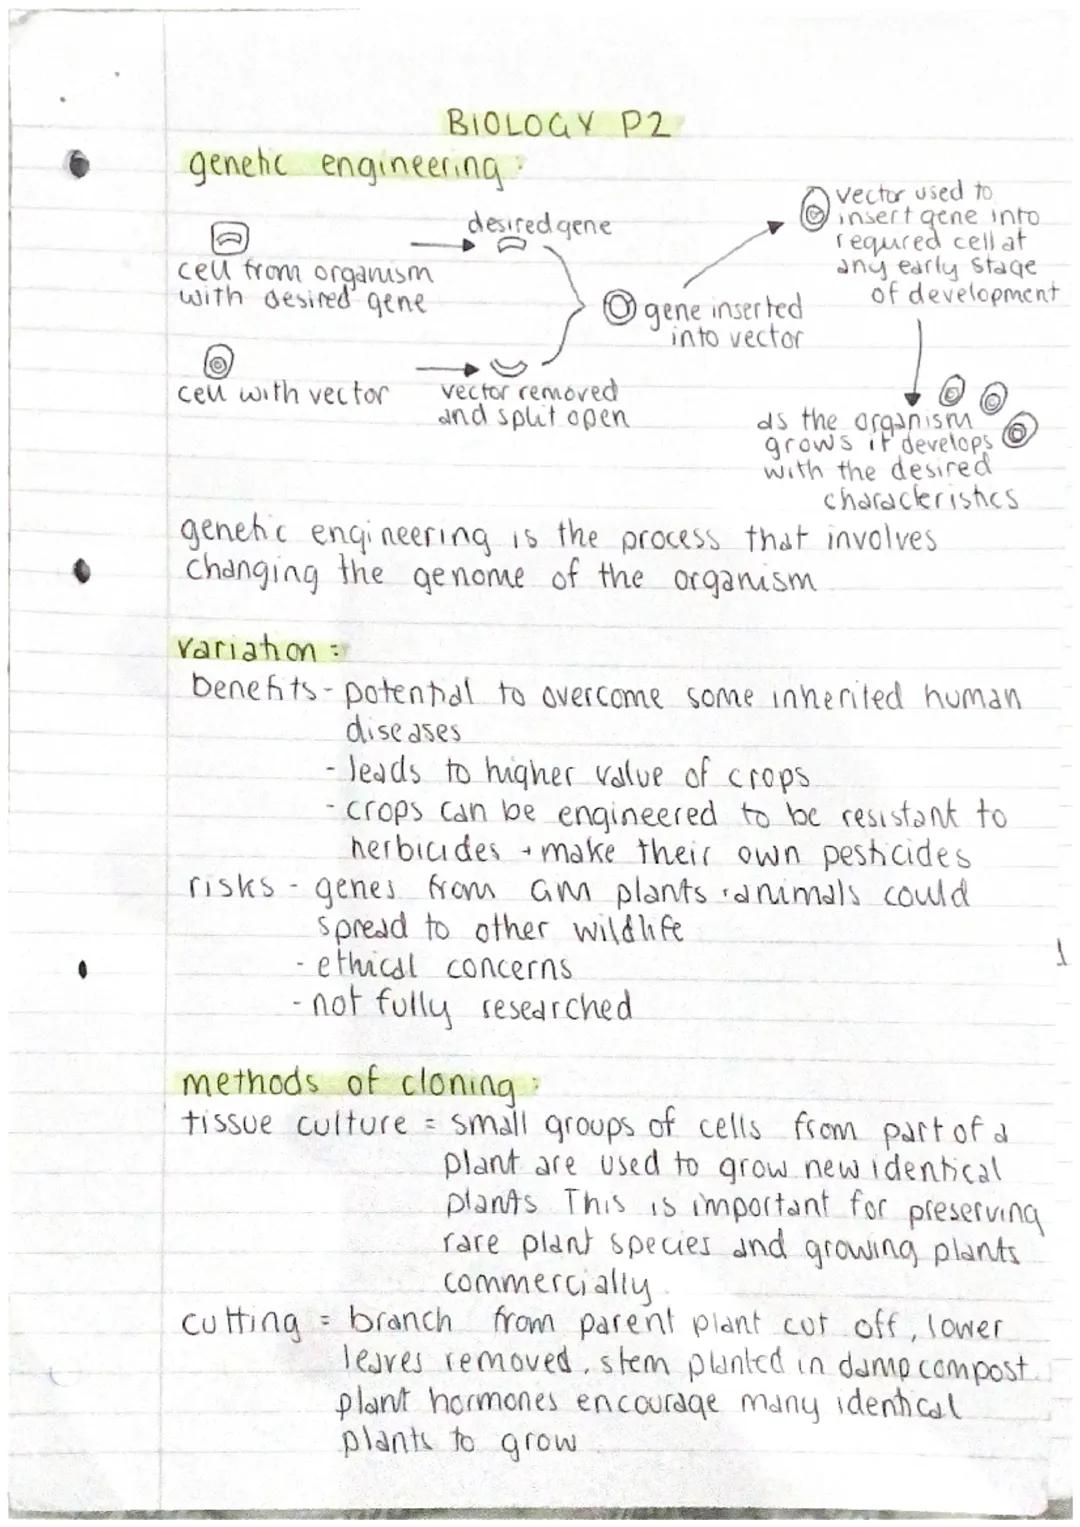 BIOLOGY P2
genetic engineering:
desired gene
cell from organism
with desired gene
cell with vector
vector removed
and split open
gene inserted
into vector
vector used to
insert gene into
required cell at
any early stage
of development
as the organism
grows it develops
with the desired
characteristics
genetic engineering is the process that involves
changing the genome of the organism
variation:
benefits - potential to overcome some inherited human
diseases
- leads to higher value of crops
- crops can be engineered to be resistant to
herbicides + make their own pesticides
risks - genes from GM plants + animals could
spread to other wildlife
- ethical concerns
- not fully researched
1
methods of cloning:
tissue culture = small groups of cells from part of a
plant are used to grow new identical
plants. This is important for preserving
rare plant species and growing plants
commercially.
cutting = branch from parent plant cut off, lower
leaves removed, stem planted in damp compost.
plant hormones encourage many identical
plants to grow